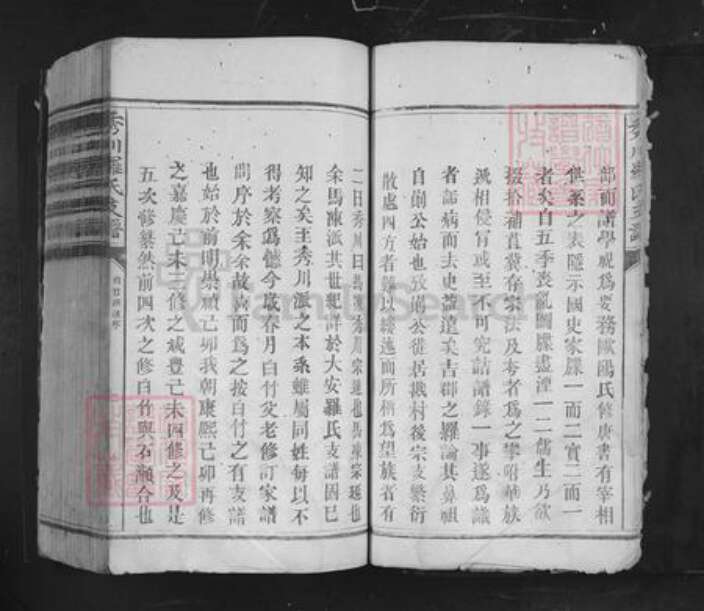 部而譜學視爲要務歐陽氏修唐書有宰相
世系之表隱示國史家牒一而二實二而一
者矣自五季喪亂圖牒盡湮一二儒生乃欲
掇拾補苴冀存宗法及考者爲之攀附華族
遞相侵冒或至不可究詰譜錄一事遂爲識
者詬病而去史蓋遠矣吉郡之羅論其鼻祖
自崱公始也致崱公徙居機村後宗支繁衍
散處四方者難以縷述而所稱爲望族者有
二曰秀川曰馬
余馬陂派其世紀詳於大安羅氏支譜固已
知之矣主秀川派之本系雖屬同姓每以不
得考察爲憾今歲春月白竹父老修訂家譜
問序於余余故喜而爲之按白竹之有支譜
也始於前明崇禎己卯我朝康熙己卯再修
之嘉慶己未三修之咸豐己未四修之及是
五次修纂然前四次之修白竹與石瀨合也
秀川羅氏支譜
FamilySearch